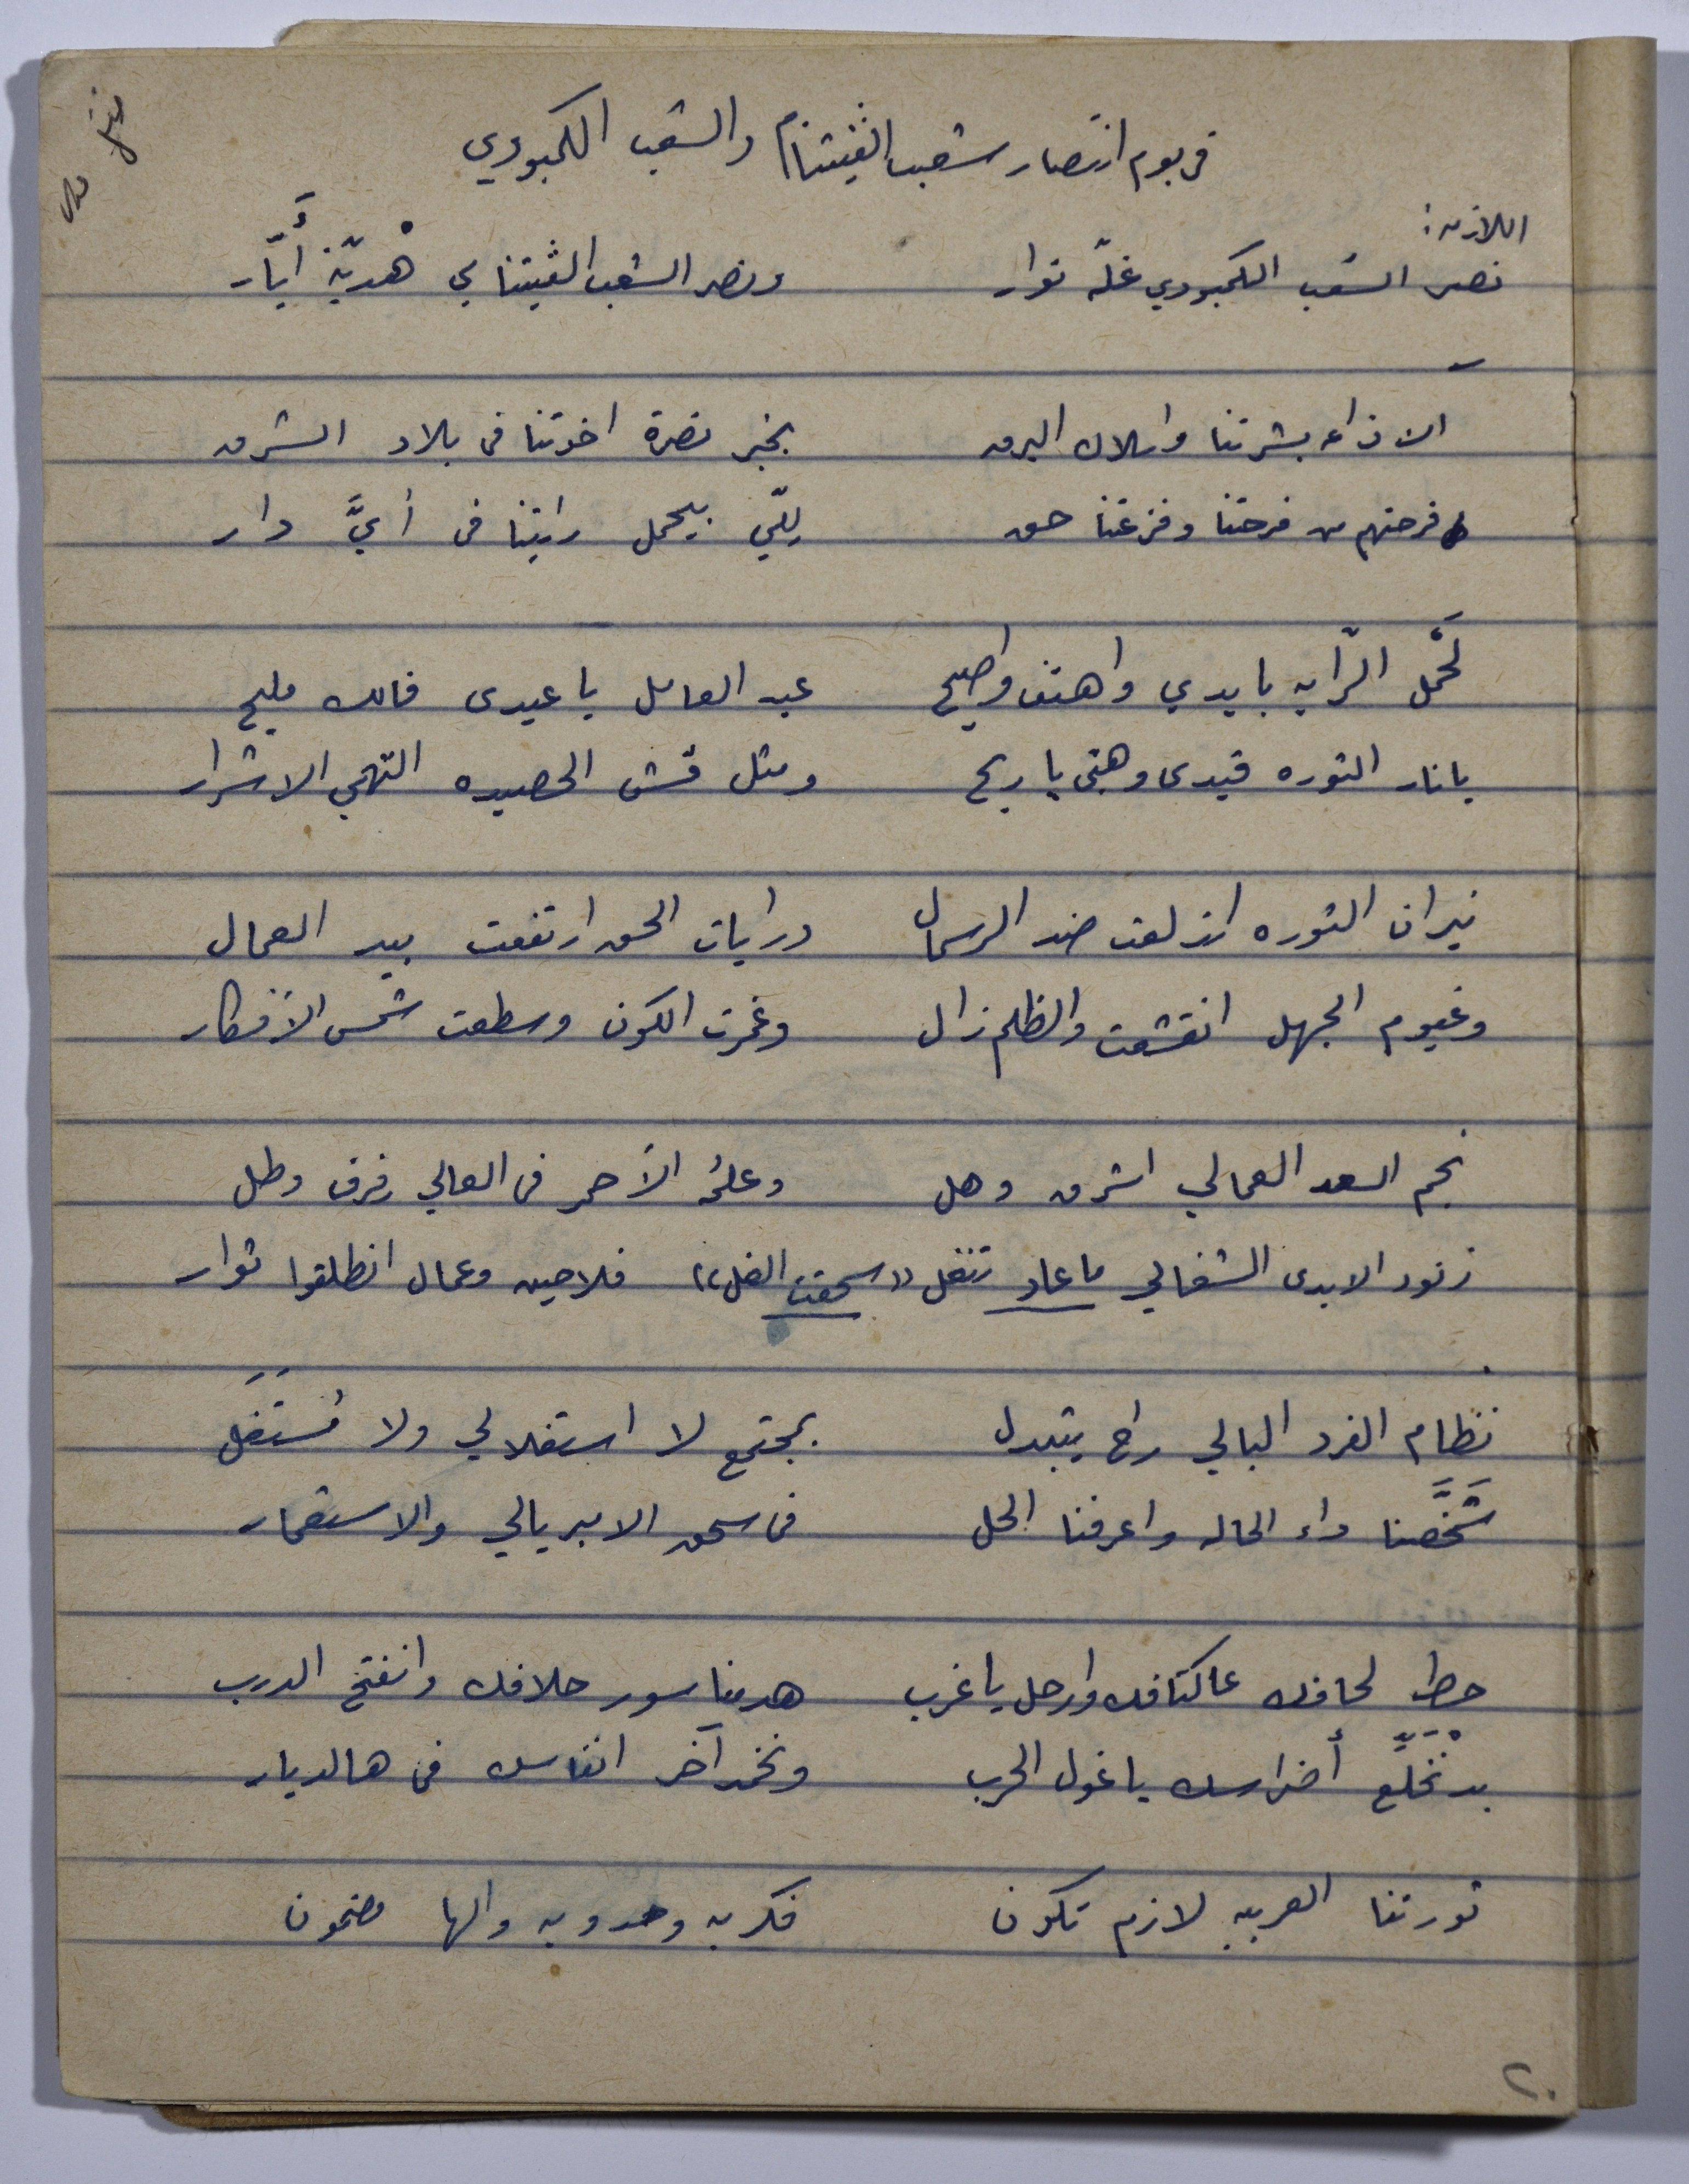 في يوم انتصار شعب الڤيتنام والشعب الكمبودي
اللازمه:
نصر الشعب الكمبودي غلّة نوار ونصر الشعب الڤيتنامي هْديّة أَيّار
بشرتنا واسلاك البرق بخبر نصرة اخوتنا في بلاد الشرق
فرحتهم من فرحتنا وفزعتنا حق يللّي بيحمل رايتنا في أيَّ دار
لَحْمل الرّايه بايدي واهتف واصيح عيد العامل يا عيدي فالك مليح
يا نار الثوره قيدي وهبّي يا ريح ومثل قش الحصيده التهمي الاشرار
نيران الثوره اندلعت ضد الرسمال ورايات الحق ارتفعت بيد العمال
وغيوم الجهل انقشعت والظلم زال وغمرت الكون وسطعت شمس الأفكار
نجم السعد العمالي اشرق وهل وعلمُه الأحمر في العالي رفرف وطل
زنود الايدي الشغالي ما عاد تنغل ((سحقت الغل)) فلاحين وعمال انطلقوا ثوار
نظام الفرد البالي راح يتبدل بمجتمع لا استغلالي ولا مُستَغَل
شَخَّصنا داء الحاله واعرفنا الحل في سحق الامبريالي والاستعمار
حط لحافك عاكتافك وارحل يا غرب هدمنا سور حلافك وانفتح الدرب
بدنخلّع أضراسك يا غول الحرب ونخمد آخر انفاسك في هالديار
ثورتنا العربيه لازم تكون فكريه وحدويه والها مضمون
٢٠